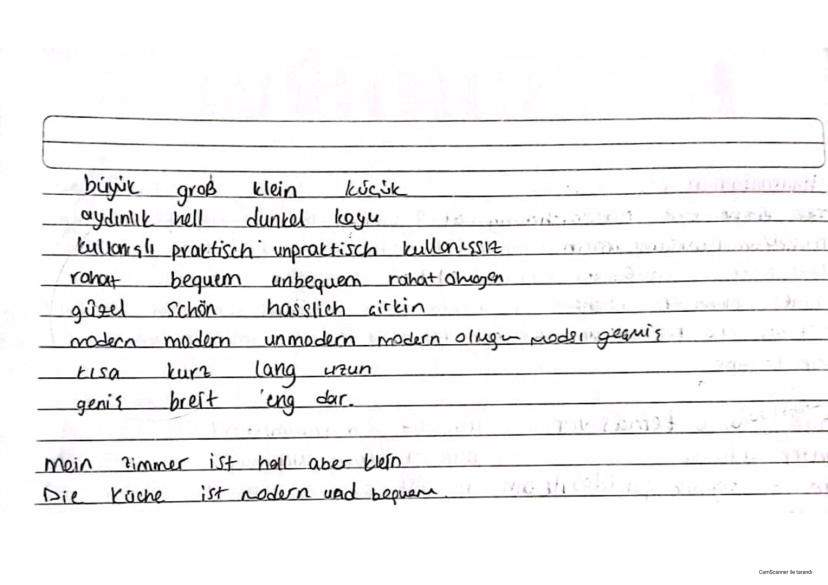 büyük groß klein küçük
aydınlık hell dunkel koyu
kullanışlı praktisch unpraktisch kullanışsız
rahat bequem unbequem rahat olmayan
güzel schön hasslich çirkin
modern modern unmodern modern olmayan modası geçmiş
kısa kurz lang uzun
geniş breit eng dar.
Mein zimmer ist hell aber klein
Die Küche ist modern und bequem.
CamScanner ile tarandı